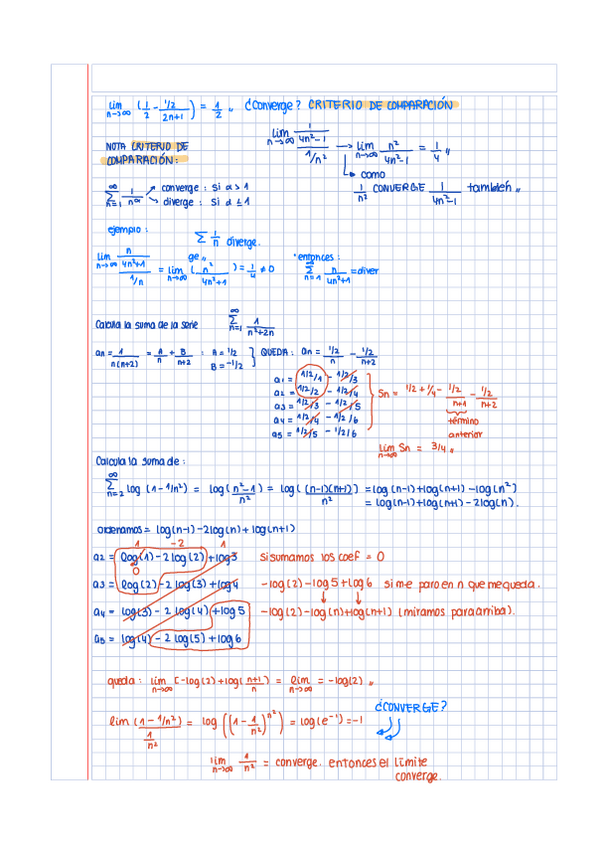 lim n→∞ (1/2 - 1/2/2n+1) = 1/2 ,, ¿Converge? CRITERIO DE COMPARACIÓN
NOTA CRITERIO DE COMPARACIÓN:
lim n→∞ 1/4n²-1 / 1/n² → lim n→∞ n²/4n²-1 = 1/4 ,,
como
∞ Σ n=1 1/nα converge : si α > 1
diverge : si α ≤ 1
1/n² CONVERGE 1/4n²-1 también ,,
ejemplo :
Σ 1/n diverge.
ge ,,
lim n→∞ n/4n²+1 / 1/n = lim n→∞ (n²/4n²+1) = 1/4 ≠ 0
entonces :
∞ Σ n=1 n/4n²+1 = diver
Calcula la suma de la serie ∞ Σ n=1 1/n²+2n
an = 1/n(n+2) = A/n + B/n+2 : A = 1/2 B = -1/2 } QUEDA : an = 1/2/n - 1/2/n+2
a1 = 1/2/1 - 1/2/3
a2 = 1/2/2 - 1/2/4
a3 = 1/2/3 - 1/2/5
a4 = 1/2/4 - 1/2/6
a5 = 1/2/5 - 1/2/6
Sn = 1/2 + 1/4 - 1/2/n+1 - 1/2/n+2
término anterior
lim n→∞ Sn = 3/4 ,,
Calcula la suma de :
∞ Σ n=2 log (1-1/n²) = log (n²-1/n²) = log ((n-1)(n+1)/n²) = log (n-1)+log(n+1) - log(n²)
= log(n-1)+log(n+1) - 2log(n).
ordenamos = log(n-1) - 2log(n) + log(n+1)
1 -2 1
a2 = log(1) - 2log(2) + log3 si sumamos los coef = 0
0
a3 = log(2) - 2log(3) + log4 -log(2) - log5 + log6 si me paro en n que me queda.
a4 = log(3) - 2 log(4) + log5 -log(2) - log(n)+log(n+1) (miramos para arriba).
a5 = log(4) - 2 log(5) + log6
queda : lim n→∞ [-log(2) + log(n+1/n) = lim n→∞ = -log(2) ,,
¿CONVERGE?
lim (1-1/n²) / 1/n² = log ((1-1/n²)^n²) = log(e⁻¹) = -1
lim n→∞ 1/n² = converge. entonces el límite
converge.